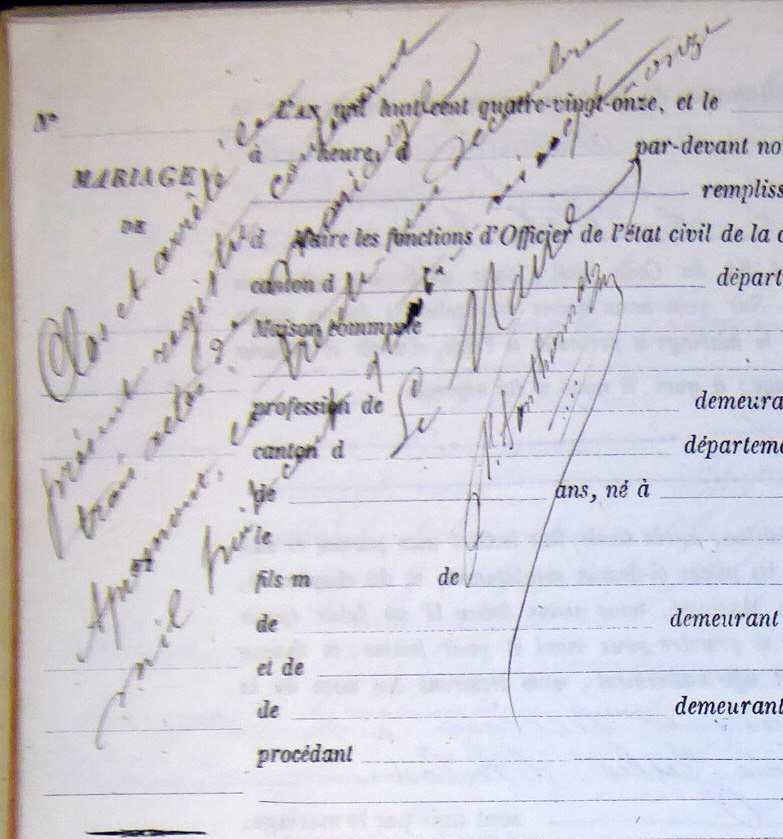 Clos et arrêté le
présent registre contenant
trois actes de mariage
Apremont, le trente un décembre
mil huit cent quatre vingt onze
Le Maire
N°
MARIAGE
DE
ET
L'AN mil huit cent quatre-vingt-onze, et le
à heure, d par-devant no
rempliss
d Maire les fonctions d'Officier de l'état civil de la c
canton d départ
Maison commune
profession de demeura
canton d départeme
de ans, né à
le
fils m de
de demeurant
et de
de demeurant
procédant